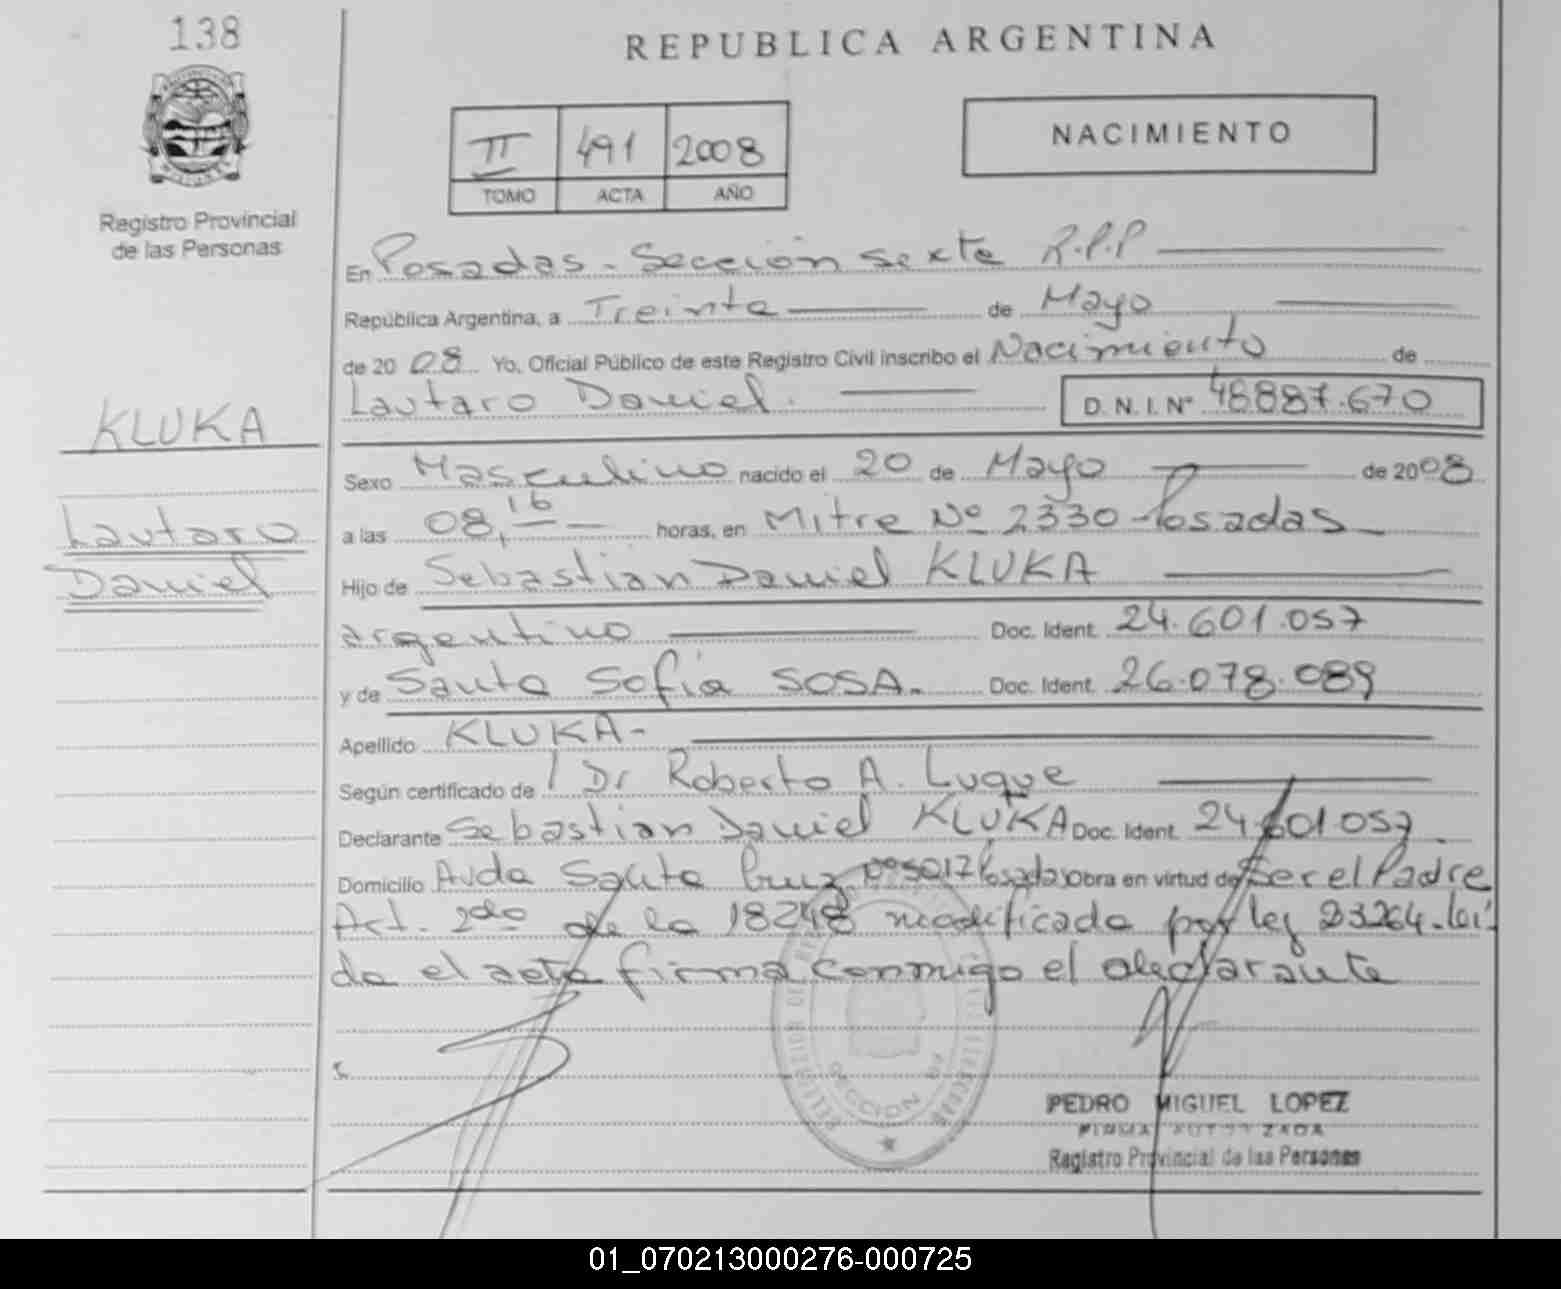 138
REPUBLICA ARGENTINA
II 491 2008
TOMO ACTA AÑO
NACIMIENTO
Registro Provincial
de las Personas
En Posadas - Sección sexta R.P.P
República Argentina, a Treinta de Mayo
de 2008 Yo, Oficial Público de este Registro Civil inscribo el Nacimiento de
Lautaro Daniel. D.N.I.Nº 48887.670
KLUKA
Sexo Masculino nacido el 20 de Mayo de 2008
Lautaro
a las 08,16 horas, en Mitre Nº 2330 - Posadas
Daniel
Hijo de Sebastian Daniel KLUKA
argentino Doc. Ident. 24.601.057
y de Santa Sofía SOSA. Doc. Ident. 26.078.089
Apellido KLUKA-
Según certificado de Dr Roberto A. Luque
Declarante Sebastian Daniel KLUKA Doc. Ident. 24601057
Domicilio Avda Santa Cruz Nº5017 Posadas Obra en virtud de Ser el Padre
Art. 2do de la 18248 modificada por ley 23264. leí-
da el acta firma conmigo el declarante
SECCION
PEDRO MIGUEL LOPEZ
FIRMA AUTORIZADA
Registro Provincial de las Personas
01_070213000276-000725